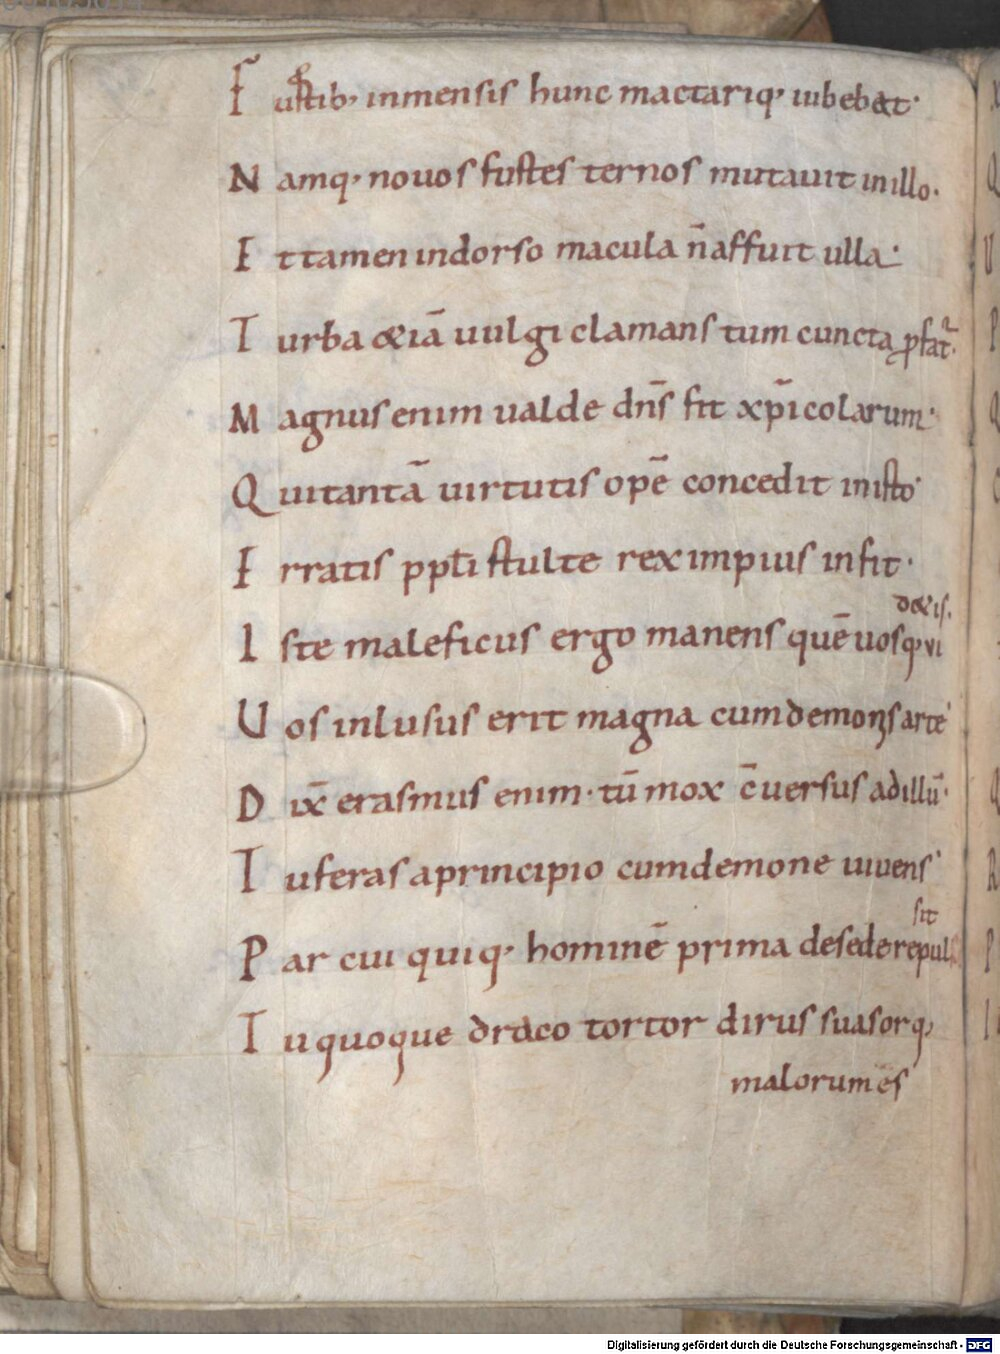 F ustib; inmensis hunc mactariq; iubebat·
N amq; nouos fustes ternos mutauit in illo·
E t tamen in dorso macula n̄ affuit ulla·
T urba &iā uulgi clamans tum cuncta p̄fat᷑·
M agnus enim ualde dn̄s fit xp̄icolarum·
Q ui tantā uirtutis opē concedit in isto·
E rratis ppl̄i stulte rex impius infit·
I ste maleficus ergo manens quē uosq; vi
d&is·
U os inlusus erit magna cum demonis arte·
D ix̄ erasmus enim· tū mox c̄uersus ad illū·
T u feras a principio cum demone uiuens·
P ar cui quiq; hominē prima de sede repul
sit
T u quoque draco tortor dirus suasorq;
malorum es